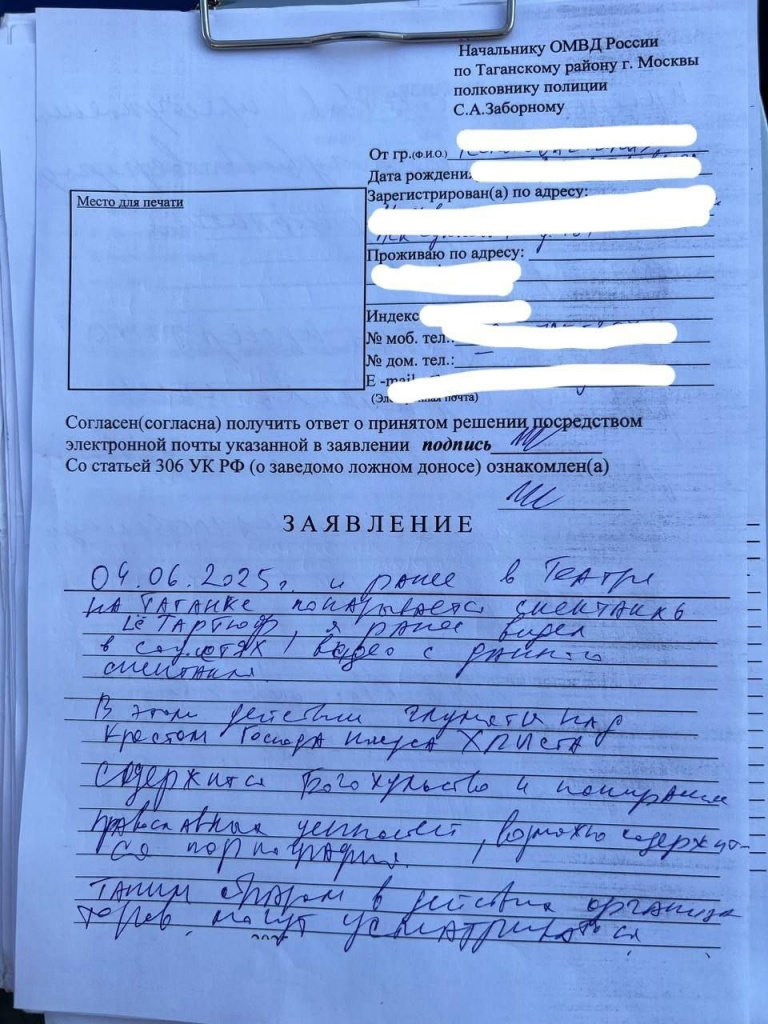 Начальнику ОМВД России
по Таганскому району г. Москвы
полковнику полиции
С.А.Заборному
От гр.(Ф.И.О.)
Дата рождения
Зарегистрирован(а) по адресу:
Место для печати
Проживаю по адресу:
Индекс
№ моб. тел.:
№ дом. тел.: —
E -mail
(Электронная почта)
Согласен(согласна) получить ответ о принятом решении посредством
электронной почты указанной в заявлении подпись
Со статьей 306 УК РФ (о заведомо ложном доносе) ознакомлен(а)
ЗАЯВЛЕНИЕ
04.06.2025г. и ранее в Театре
на Таганке показывается спектакль
Lё Тартюф, я ранее видел
в соцсетях видео с данного
спектакля.
В этом действии глумятся над
Крестом Господа Иисуса Христа
содержится Богохульство и попирание
православных ценностей, возможно содержит-
ся порнография.
Таким образом в действиях организа
торов могут усматриваться